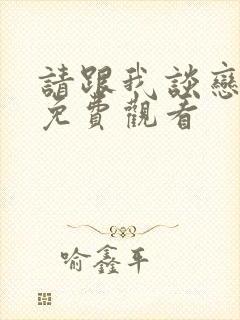 請跟我談戀
免費觀看
喻鑫平